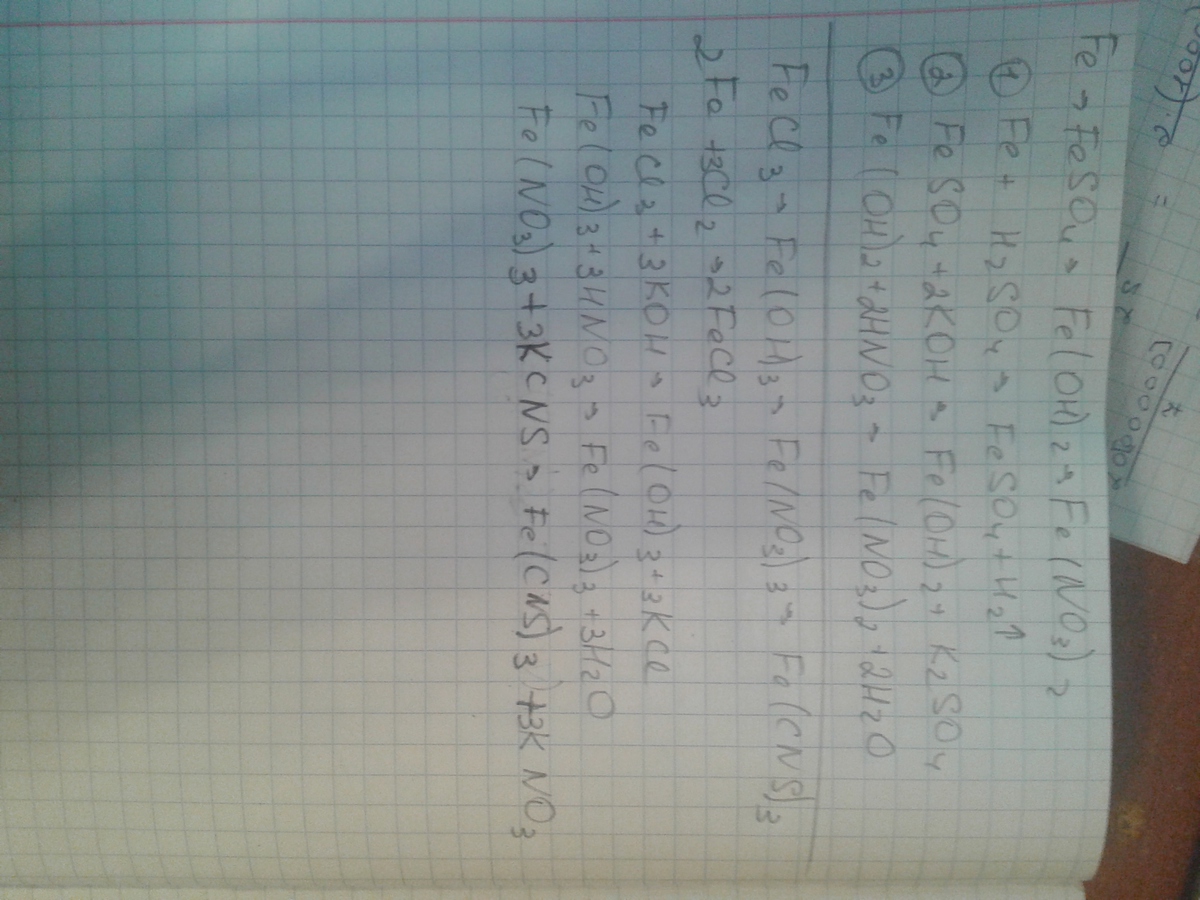 Fe → FeSO4 → Fe(OH)2 → Fe(NO3)2
① Fe + H2SO4 → FeSO4 + H2↑
② FeSO4 + 2KOH → Fe(OH)2 + K2SO4
③ Fe(OH)2 + 2HNO3 → Fe(NO3)2 + 2H2O
FeCl3 → Fe(OH)3 → Fe(NO3)3 → Fe(CNS)3
2Fe + 3Cl2 → 2FeCl3
FeCl3 + 3KOH → Fe(OH)3 + 3KCl
Fe(OH)3 + 3HNO3 → Fe(NO3)3 + 3H2O
Fe(NO3)3 + 3KCNS → Fe(CNS)3 + 3KNO3